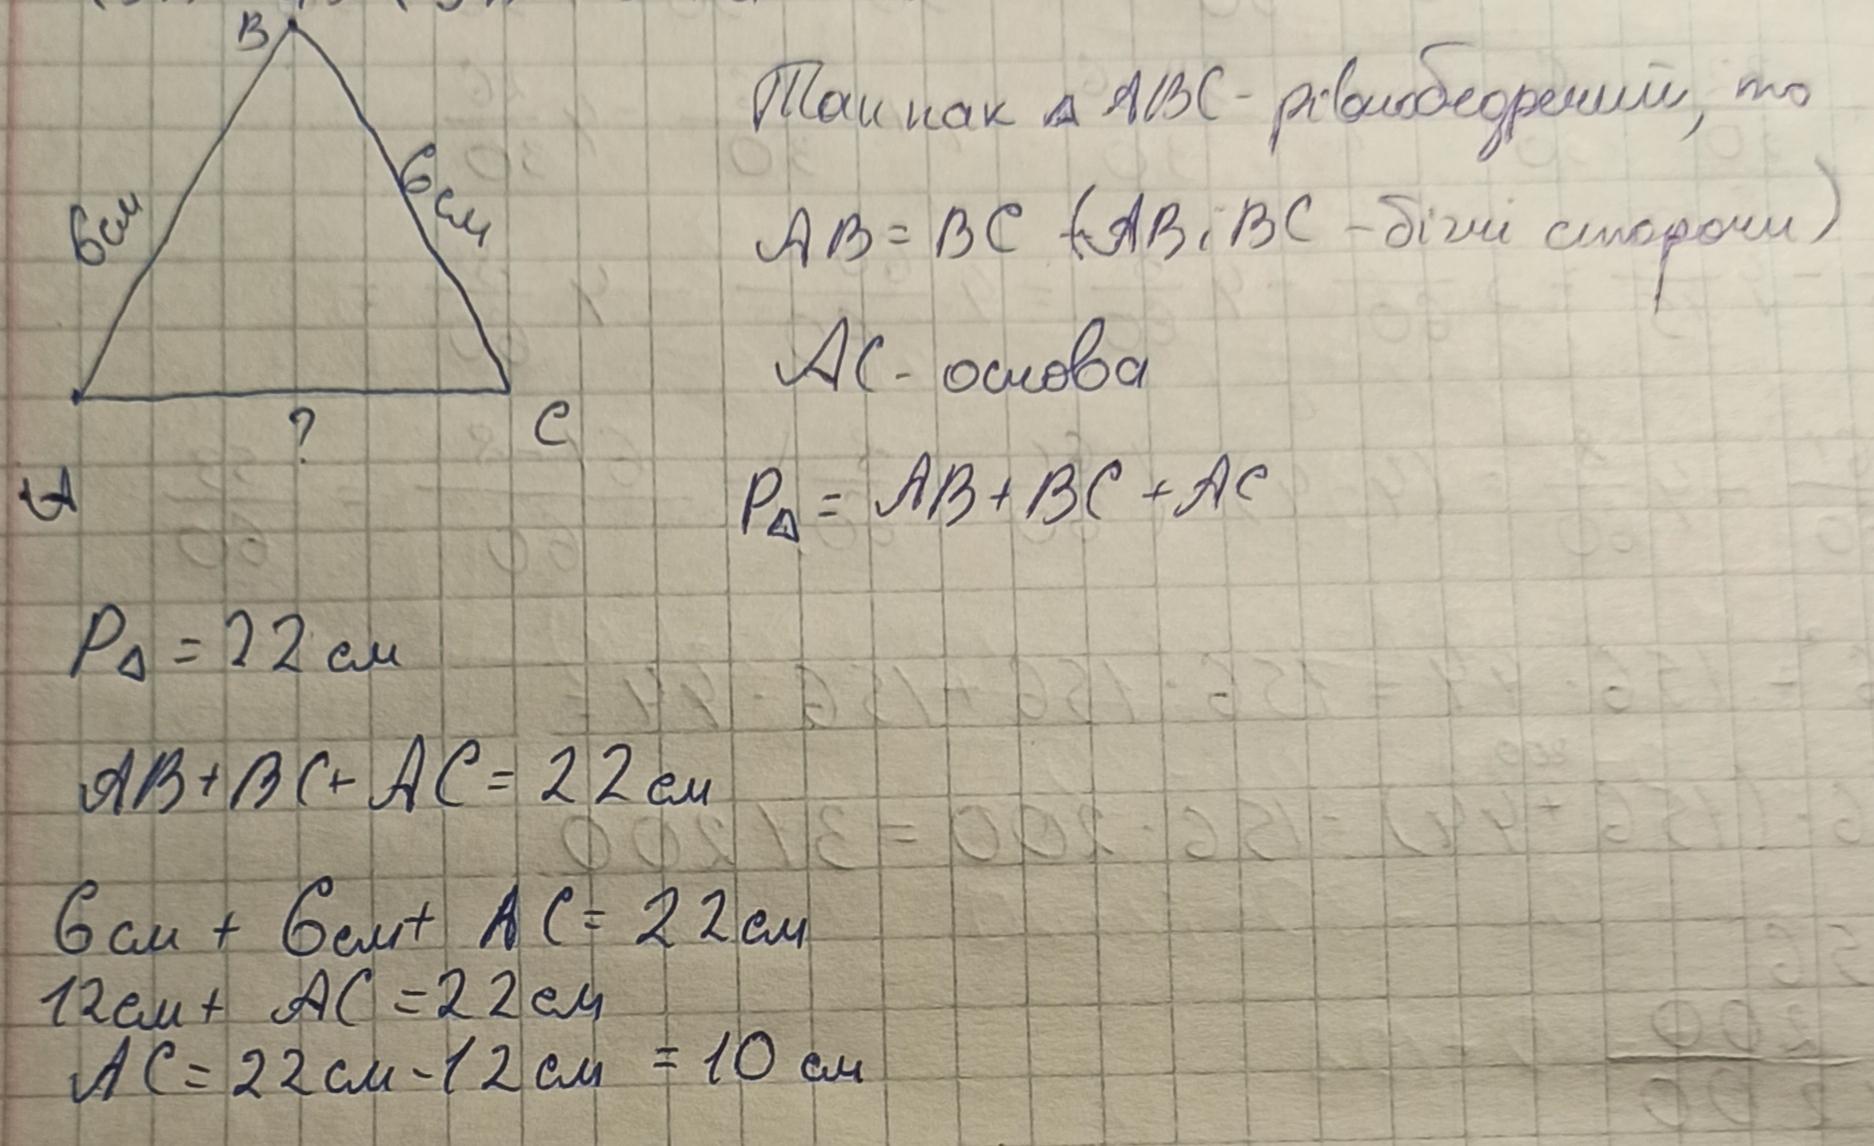 B
Так как △ ABC - рівнобедрений, то
6см
6см
AB = BC (AB і BC - бічні сторони)
AC - основа
?
C
A
P△ = AB + BC + AC
P△ = 22 см
AB + BC + AC = 22 см
6 см + 6 см + AC = 22 см
12 см + AC = 22 см
AC = 22 см - 12 см = 10 см